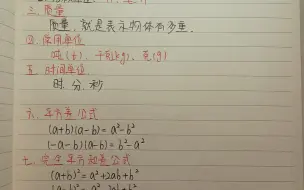 三、质量
质量,就是表示物体有多重.
四、常用单位
吨(t)、千克(kg)、克(g)
五、时间单位
时、分、秒
六、平方差公式
(a+b)(a-b)=a²-b²
(-a-b)(a-b)=b²-a²
七、完全平方和差公式
(a+b)²=a²+2ab+b²